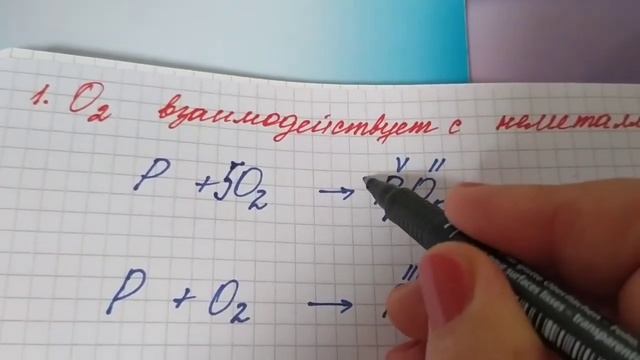 1. O₂ взаимодействует с неметалл
P + 5O₂ → P₂O₅ V II
P + O₂ → III